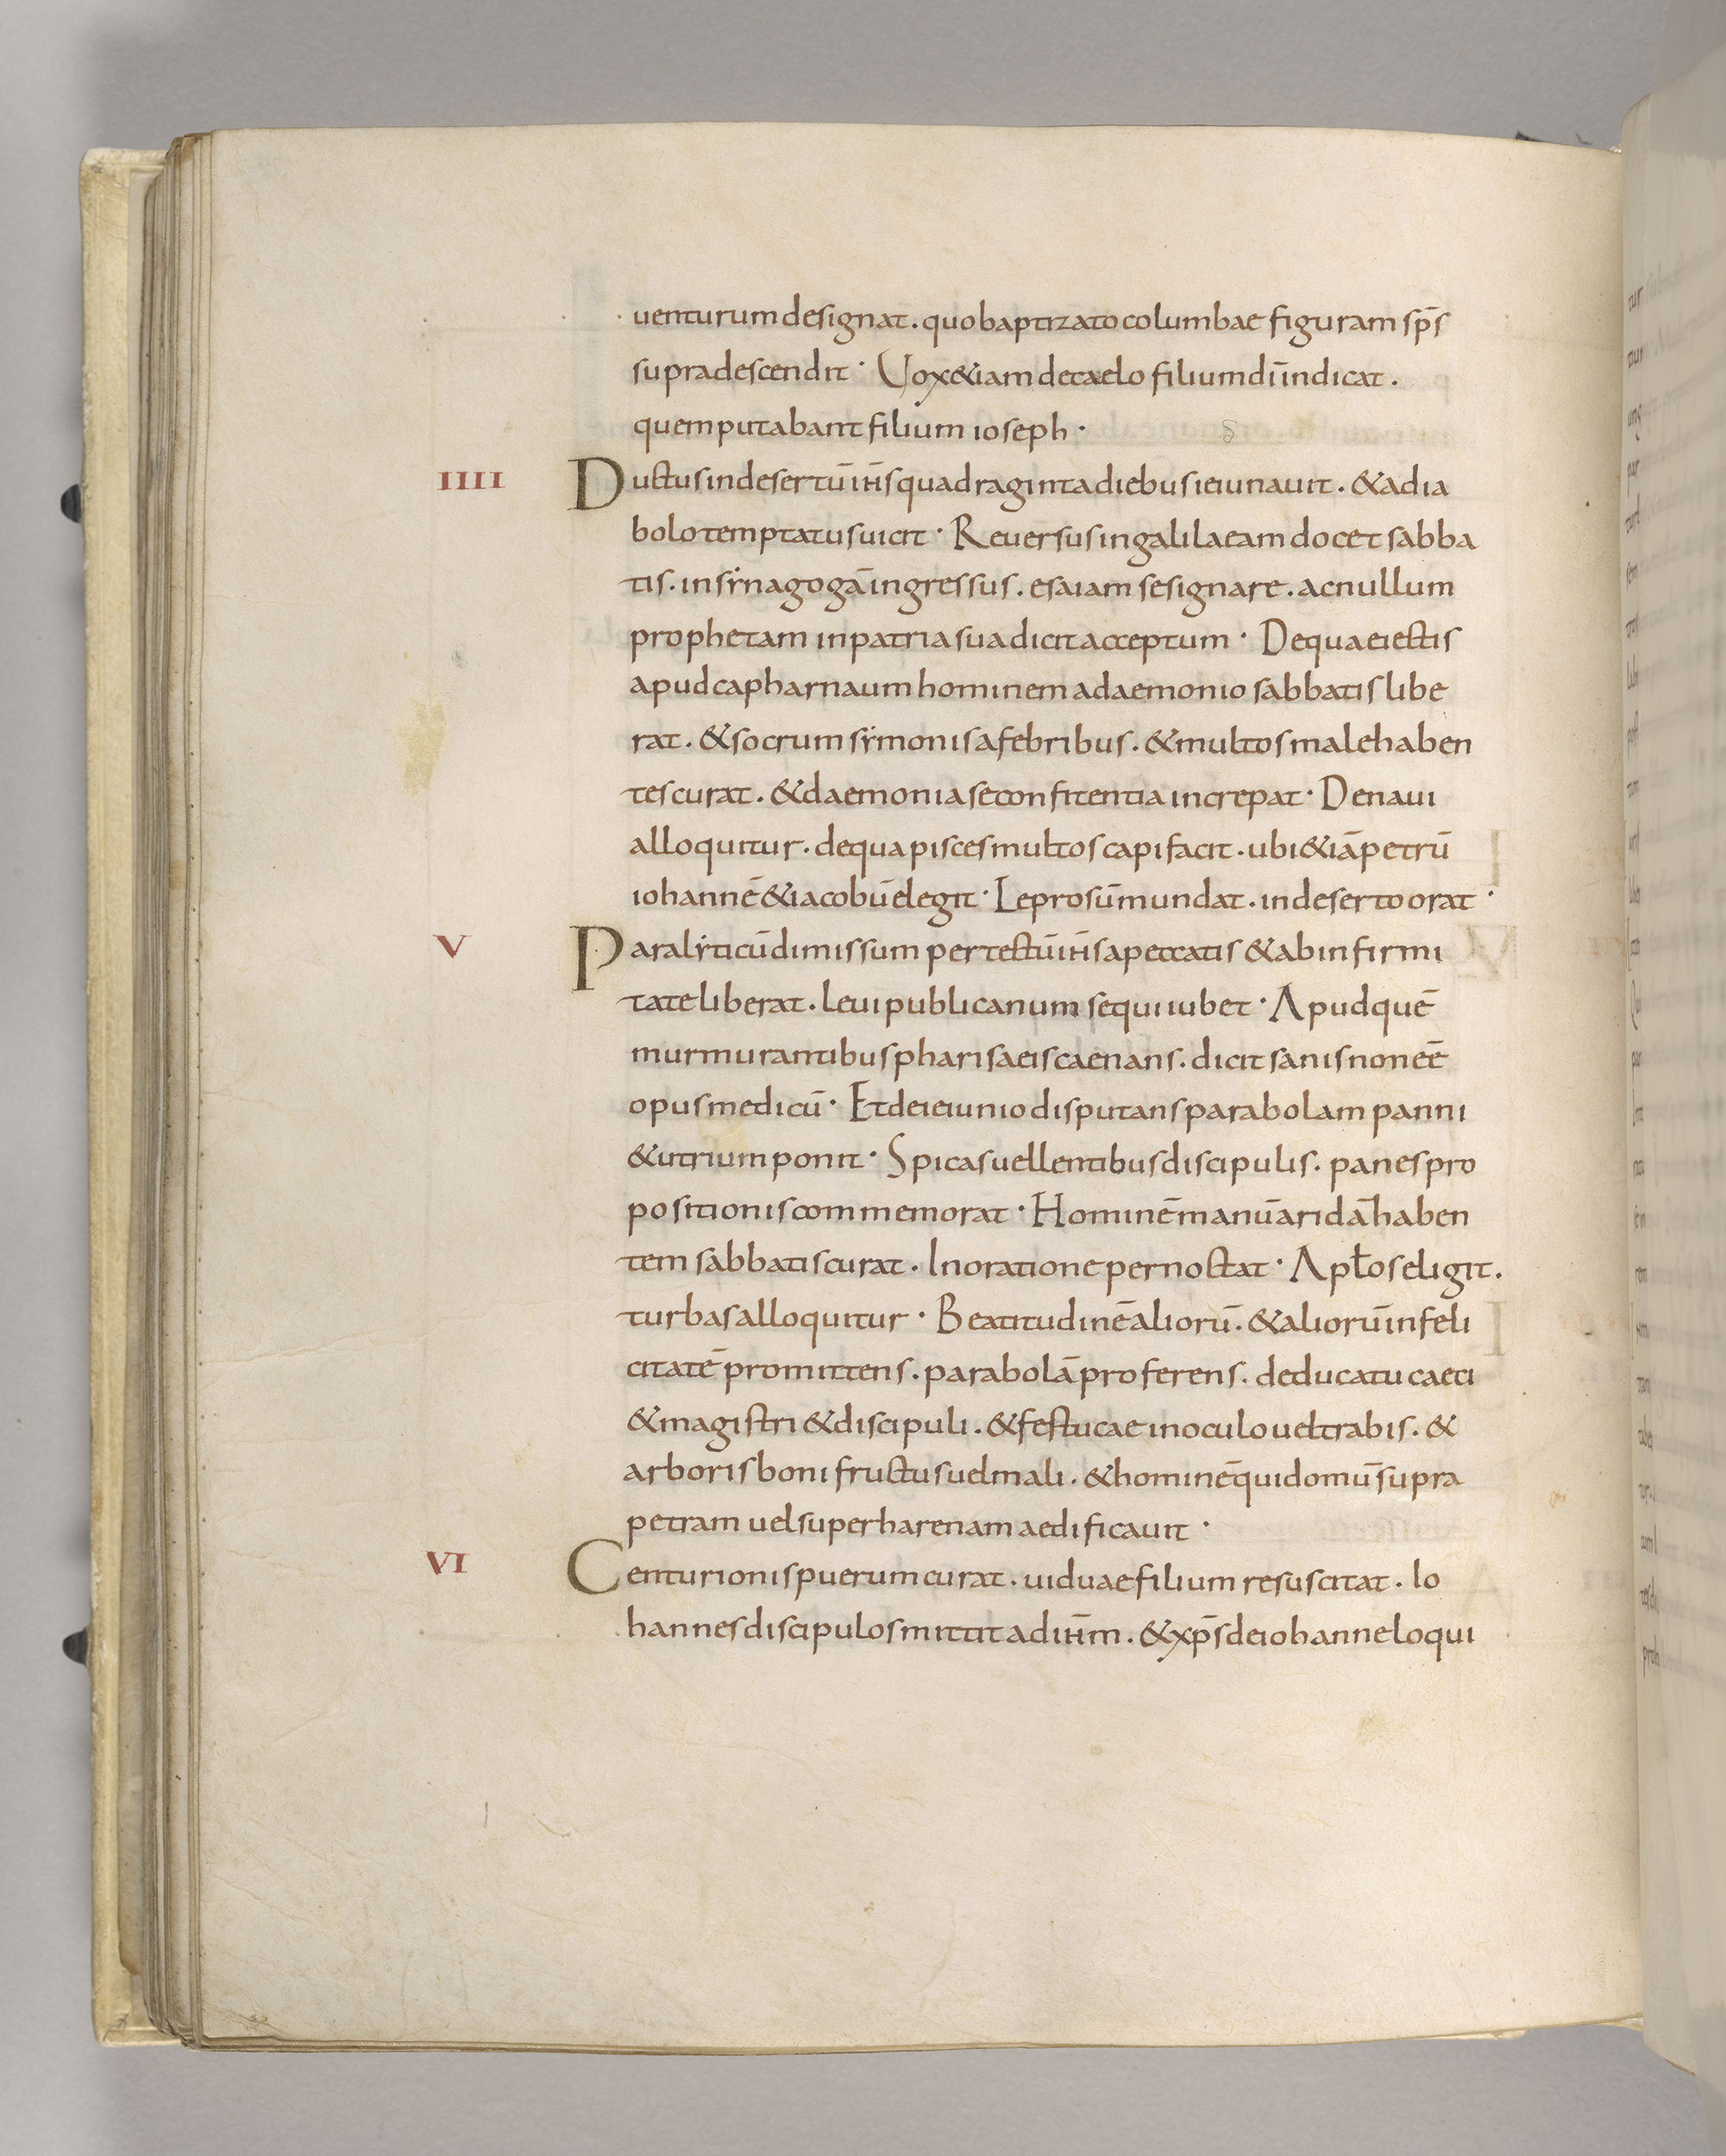 uenturum designat. quo baptizato columbae figuram sp̄s
supra descendit · Vox &iam de caelo filium dī indicat.
quem putabant filium ioseph ·
IIII Ductus in desertū ih̄s quadraginta diebus ieiunauit. & a dia
bolo temptatus uicit · Reuersus in galilaeam docet sabba
tis. in sẏnagogā ingressus. esaiam se signare. ac nullum
prophetam in patria sua dicit acceptum · De qua eiectis
apud capharnaum hominem a daemonio sabbatis libe
rat. & socrum sẏmonis a febribus. & multos male haben
tes curat. & daemonia se confitentia increpat · De naui
alloquitur. de qua pisces multos capi facit. ubi &iā petrū
iohannē & iacobū elegit · Leprosū mundat. in deserto orat ·
V Paralẏticū dimissum per tectū ih̄s a peccatis & ab infirmi
tate liberat. leui publicanum sequi iubet · Apud quē
murmurantibus pharisaeis caenans. dicit sanis non eē
opus medicū · Et de ieiunio disputans parabolam panni
& utrium ponit · Spicas uellentibus discipulis. panes pro
positionis commemorat · Hominē manū aridā haben
tem sabbatis curat. In oratione pernoctat · Apl̄os eligit.
turbas alloquitur · Beatitudinē aliorū. & aliorū infeli
citatē promittens. parabolā proferens. de ducatu caeci
& magistri & discipuli. & festucae in oculo uel trabis. &
arboris boni fructus uel mali. & hominē qui domū supra
petram uel super harenam aedificauit ·
VI Centurionis puerum curat. uiduae filium resuscitat. Io
hannes discipulos mittit ad ih̄m. & xp̄s de iohanne loqui